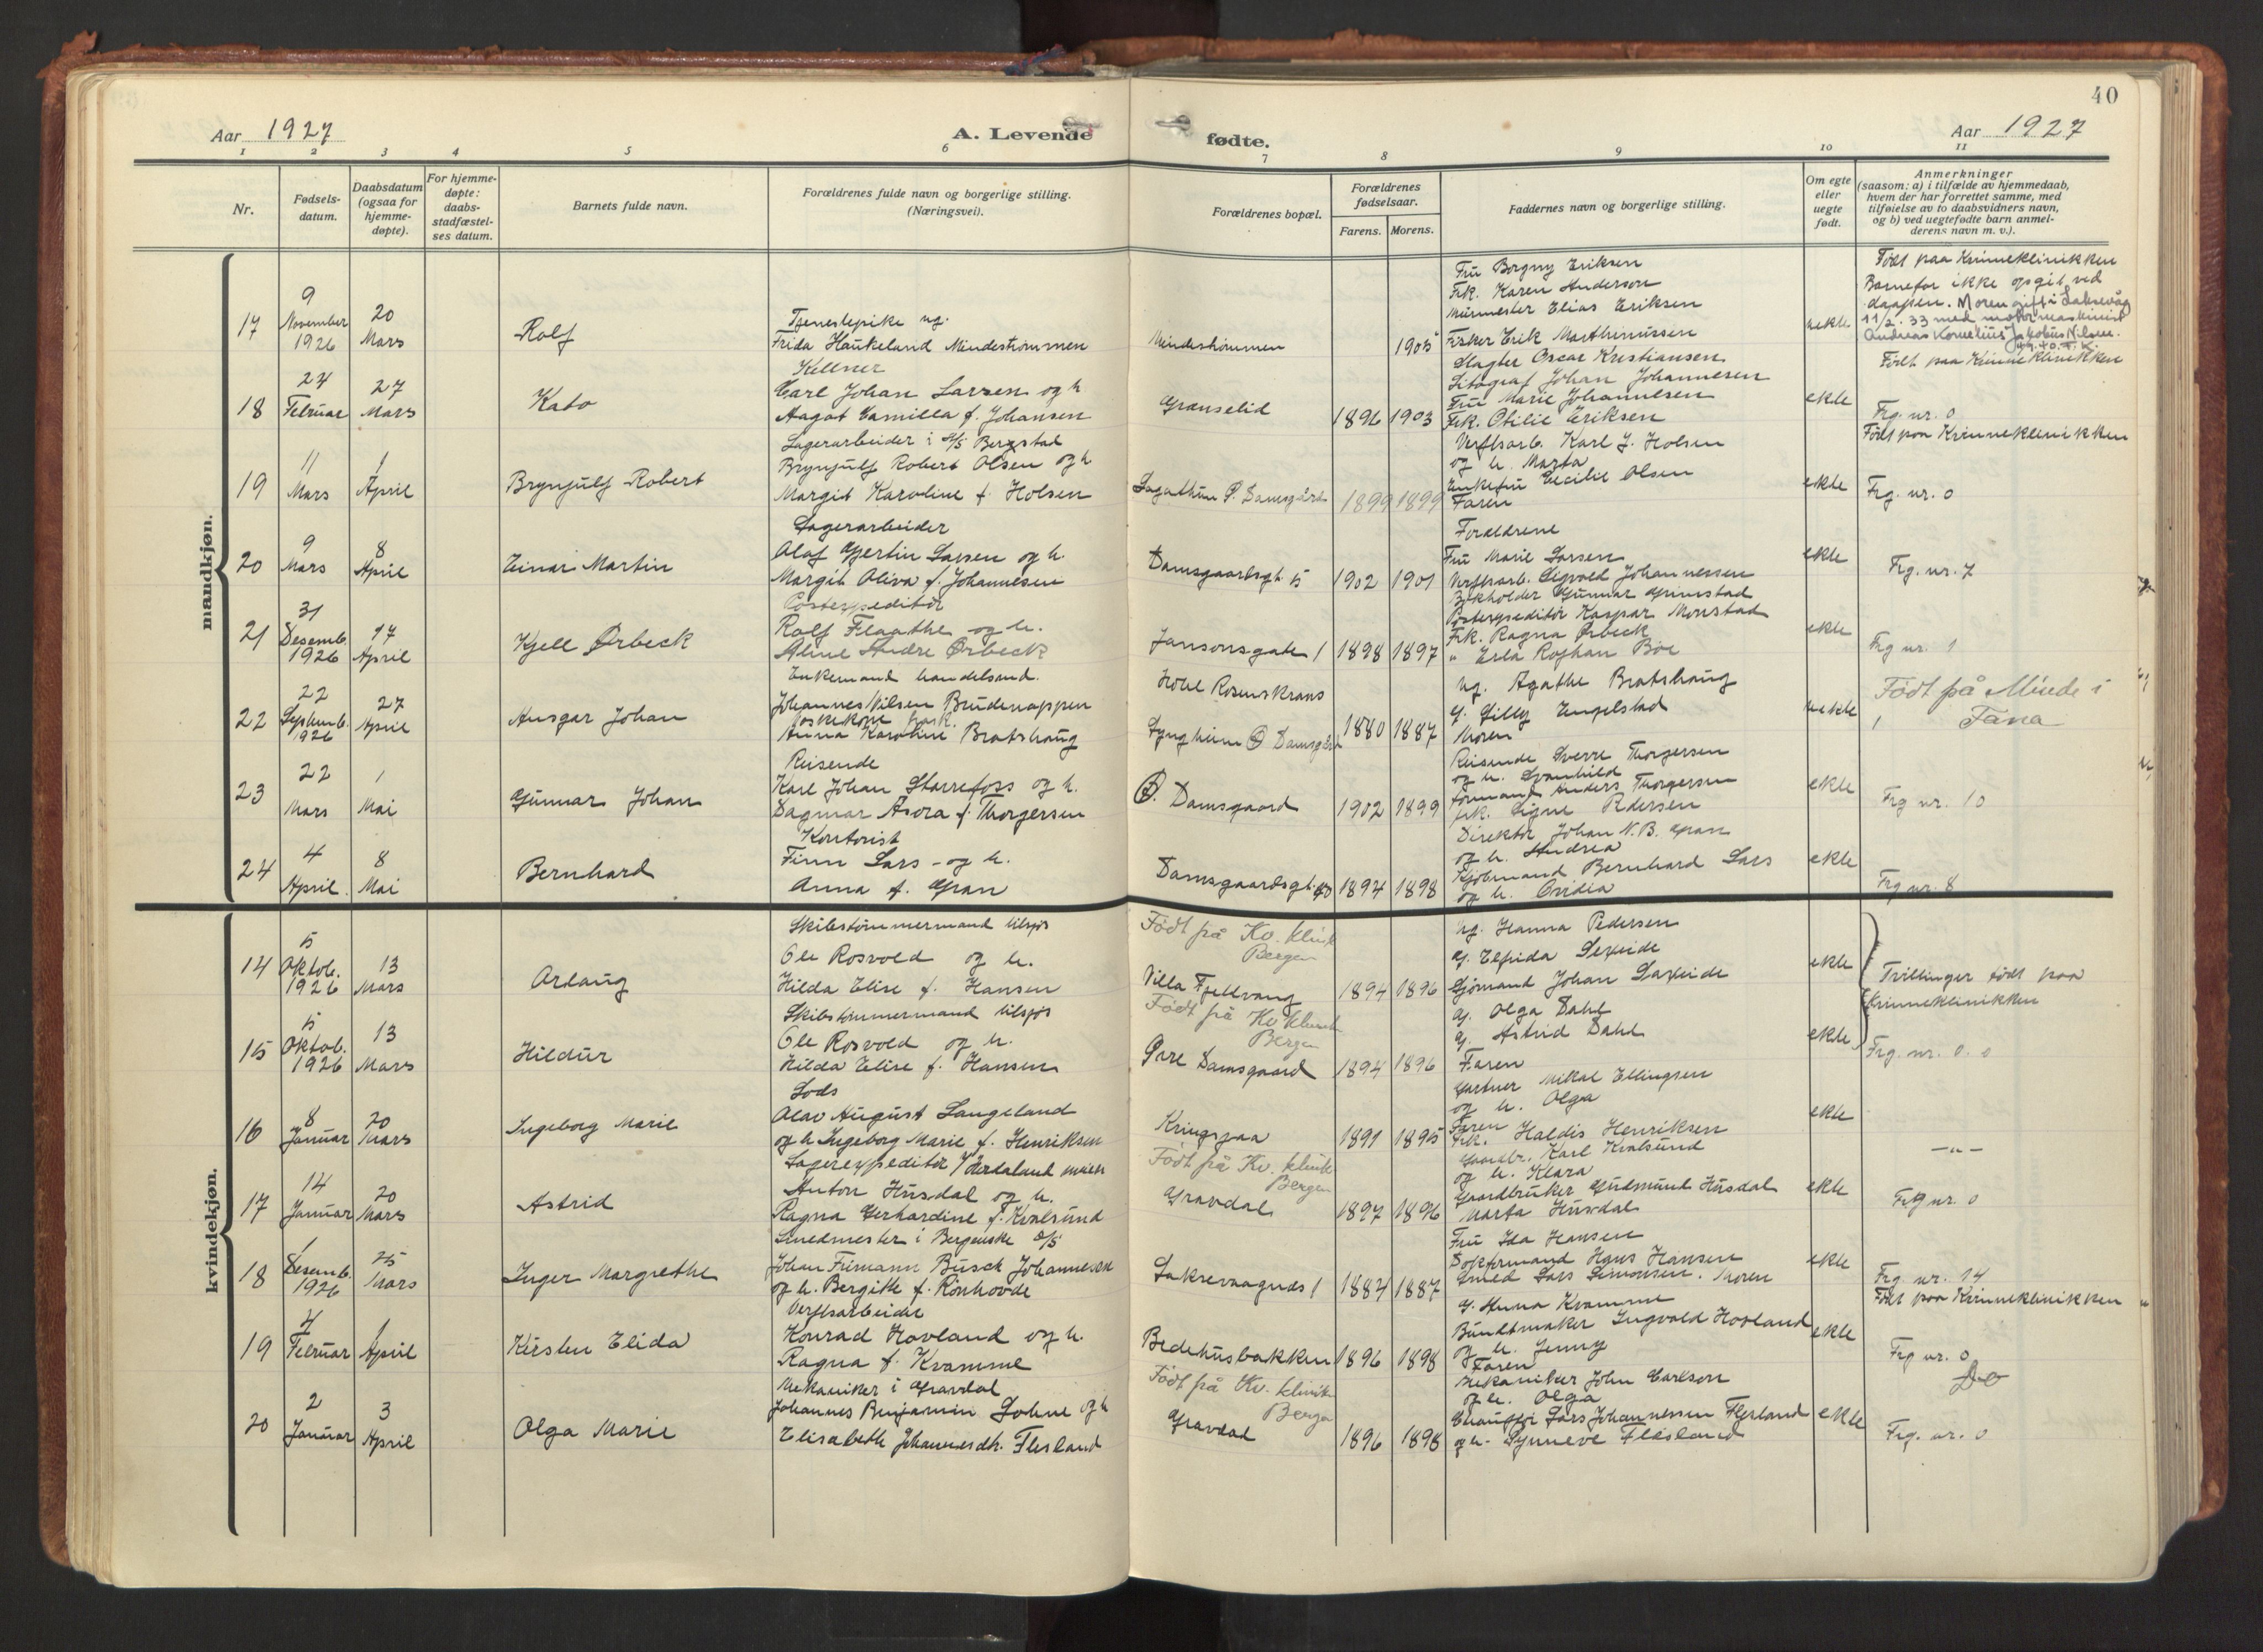 40
Aar 1927
A. Levende fødte.
Aar 1927
1 2 3 4 5 6 7 8 9 10 11
Nr.
Fødsels-
datum.
Daabsdatum
(ogsaa for
hjemme-
døpte).
For hjemme-
døpte:
daabs-
stadfæstel-
ses datum.
Barnets fulde navn.
Forældrenes fulde navn og borgerlige stilling.
(Næringsvei).
Forældrenes bopæl.
Forældrenes
fødselsaar.
Farens. Morens.
Faddernes navn og borgerlige stilling.
Om egte
eller
uegte
født.
Anmerkninger
(saasom: a) i tilfælde av hjemmedaab,
hvem der har forrettet samme, med
tilføielse av to daabsvidners navn,
og b) ved uegtefødte barn anmel-
derens navn m. v.).
mandkjøn.
17
9
November
1926
20
Mars
Rolf
Tjenestepike ug.
Frida Haukeland Mindestrømmen
Mindestrømmen
1905
Fru Borgny Eriksen
Frk. Karen Anderson
Murmester Elias Eriksen
Fisker Erik Marthinussen
Slagter Oscar Kristiansen
uekte
Født paa Kvinneklinikken
Barnefar ikke opgit ved
daapen. Moren gift i Laksevåg
11/2. 33 med motormaskinist
Andreas Kornelius Jakobus Nilsen.
18
24
Februar
27
Mars
Kato
Kellner
Carl Johan Larsen og h
Aagot Camilla f. Johansen
Grønselid
1896 1903
Litograf Johan Johannesen
Fru Marie Johannesen
Frk. Otilie Eriksen
ekte
Født paa Kvinneklinikken
Frg. nr. 0
19
11
Mars
1
April
Brynjulf Robert
Lagerarbeider i A/S Bergstad
Brynjulf Robert Olsen og h
Margit Karoline f. Holsen
Lagathun P. Damsgård
1899 1899
Verftsarb. Karl J. Holsen
og h. Marta
Enkefru Cecilie Olsen
Faren
ekte
Født paa Kvinneklinikken
Frg. nr. 0
20
9
Mars
8
April
Einar Martin
Lagerarbeider
Olaf Gjertin Larsen og h.
Margit Oliva f. Johannesen
Damsgaardsgt. 5
1902 1901
Forældrene
Fru Marie Larsen
Verftsarb. Sigvald Johannessen
ekte
Frg. nr. 7
21
31
Desemb.
1926
17
April
Kjell Ørbeck
Postexpeditør
Rolf Flaathe og h.
Aline Andre Ørbeck
Jansonsgate 1
1898 1897
Bokholder Gunnar Grimstad
Postexpeditør Kaspar Monstad
Frk. Ragna Ørbeck
" Erla Rojhan Bøe
ekte
Frg nr. 1
22
22
Septemb.
1926
27
April
Ansgar Johan
Enkemand handelsmd.
Johannes Nilsen Brudenappen
Anna Karoline Bratshaug
Hotel Rosenkrans
Lyngheim Ø Damsgård
1880 1887
ug. Agathe Bratshaug
g. Lilly Engelstad
Moren
uekte
Født på Minde i
Fana
1
23
22
Mars
1
Mai
Gunnar Johan
Reisende
Karl Johan Starrefoss og h.
Dagmar Asora f. Thorgersen
Ø. Damsgaard
1902 1899
Reisende Sverre Thorgersen
og h. Svanhild
formand Anders Thorgersen
frk. Signe Pedersen
ekte
Frg nr. 10
24
4
April
8
Mai
Bernhard
Kontorist
Finn Lars - og h.
Anna f. Gran
Damsgaardsgt.
1894 1898
Direktør Johan N. B. Gran
og h. Andrea
Kjøbmand Bernhard Lars
og h. Ovidia
ekte
Frg nr. 8
kvindekjøn.
14
5
Oktob.
1926
13
Mars
Arlaug
Skibstømmermand tilsjøs
Ole Rosvold og h.
Hilda Elise f. Hansen
Født på Kv. klinik
Bergen
Villa Fjellvang
1894 1896
ug. Hanna Pedersen
g. Elfrida Lexeide
Sjømand Johan Laxeide
ekte
Tvillinger født paa
Kvinneklinikken
15
5
Oktob.
1926
13
Mars
Hildur
Skibstømmermand tilsjøs
Ole Rosvold og h.
Hilda Elise f. Hansen
Født på Kv. klinik
Bergen
Øvre Damsgaard
1894 1896
g. Olga Dahl
g. Astrid Dahl
Faren
ekte
Frg. nr. 0. 0
16
8
Januar
20
Mars
Ingeborg Marie
Lods
Olav August Langeland
og h Ingeborg Marie f. Henriksen
Kringsjaa
1891 1895
Gartner Mikal Ellingsen
og h. Olga
Faren
Frk. Haldis Henriksen
ekte
— " —
17
14
Januar
20
Mars
Astrid
Lagerexpeditør
Anton Husdal og h.
Ragna Gerhardine f. Kvalsund
Født på Kv. klinik
Bergen
Gravdal
1897 1896
Gaardbr. Karl Kvalsund
og h. Klara
Gaardbruker Gudmund Husdal
Marta Husdal
ekte
Frg nr. 0
18
1
Desemb.
1926
25
Mars
Inger Margrethe
Smedmester i Bergenske D/S
Johan Frimann Busch Johannesen
og h. Bergitte f. Rønhovde
Laksevaagnes 1
1884 1887
Fru Ida Hansen
Dokformand Hans Hansen
Smed Lars Simonsen. Moren
ekte
Frg nr. 14
19
4
Februar
1
April
Kirsten Elida
Verftsarbeider
Konrad Hovland og h.
Ragna f. Kvamme
Bedehusbakken
1896 1898
g. Anna Kvamme
Buntmaker Ingvald Hovland
og h. Jenny
Faren
ekte
Født paa Kvinneklinikken
Frg nr. 0
20
2
Januar
3
April
Olga Marie
Mekaniker i Gravdal
Johannes Benjamin Lohne og h
Elisabeth Johannesdtr. Flesland
Født på Kv. klinik
Bergen
Gravdal
1896 1898
Mekaniker John Carlson
og h. Olga
Chauffør Lars Johannessen Flesland
og h. Synneve Flesland
ekte
Do
Frg. nr. 0